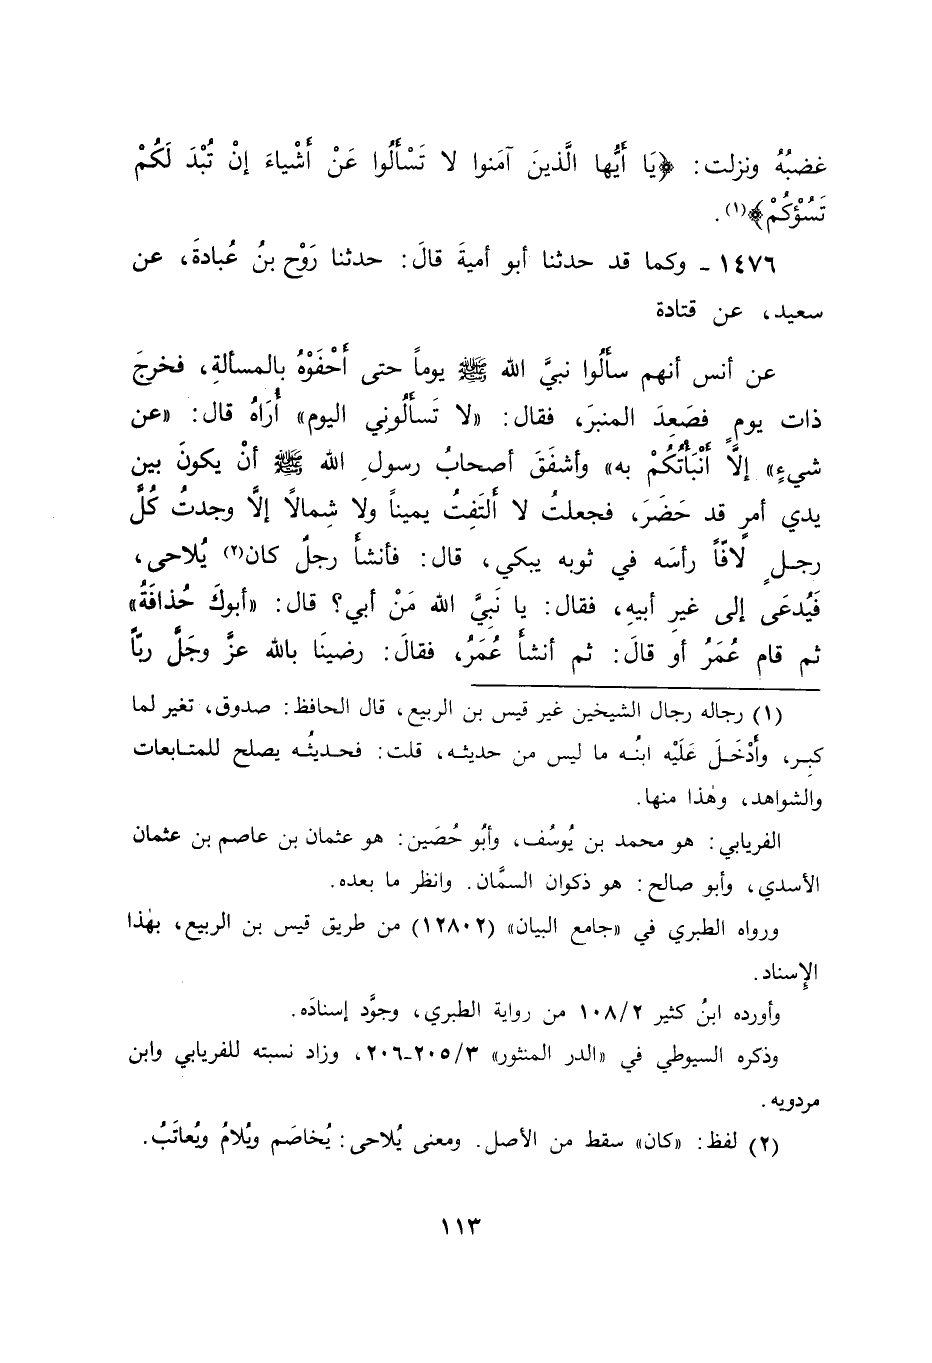 غضبُهُ ونزلت: ﴿يَا أَيُّها الَّذينَ آمَنوا لا تَسْأَلُوا عَنْ أَشْياءَ إنْ تُبْدَ لَكُمْ
تَسُؤْكُمْ﴾(١).
١٤٧٦ ـ وكما قد حدثنا أبو أميةَ قالَ: حدثنا رَوْح بنُ عُبادةَ، عن
سعيد، عن قتادة
عن أنس أنهم سأَلُوا نبيَّ الله ﷺ يوماً حتى أَحْفَوْهُ بالمسألةِ، فخرجَ
ذات يومٍ فصَعِدَ المنبرَ، فقال: «لا تَسألُوني اليوم» أُرَاهُ قال: «عن
شيءٍ» إلَّا أَنْبَأْتُكُمْ به» وأشفَقَ أصحابُ رسولِ الله ﷺ أنْ يكونَ بين
يدي أمرٍ قد حَضَرَ، فجعلتُ لا أَلتَفِتُ يميناً ولا شِمالاً إلَّا وجدتُ كُلَّ
رجلٍ لافّاً رأسَه في ثوبه يبكي، قال: فأنشأَ رجلٌ كان(٢) يُلاحى،
فَيُدعَى إلى غيرِ أبيهِ، فقال: يا نَبيَّ الله مَنْ أبي؟ قال: «أبوكَ حُذافَةُ»
ثم قام عُمَرُ أو قالَ: ثم أنشأَ عُمَرُ، فقالَ: رضينَا بالله عزَّ وجَلَّ ربّاً
(١) رجاله رجال الشيخين غير قيس بن الربيع، قال الحافظ: صدوق، تغير لما
كبِر، وأَدْخَلَ عَلَيْه ابنُه ما ليس من حديثه، قلت: فحديثُه يصلح للمتابعات
والشواهد، وهٰذا منها.
الفريابي: هو محمد بن يُوسُف، وأبُو حُصَين: هو عثمان بن عاصم بن عثمان
الأسدي، وأبو صالح: هو ذكوان السمَّان. وانظر ما بعده.
ورواه الطبري في «جامع البيان» (١٢٨٠٢) من طريق قيس بن الربيع، بهٰذا
الإِسناد.
وأورده ابنُ كثير ١٠٨/٢ من رواية الطبري، وجوَّد إسنادَه.
وذكره السيوطي في «الدر المنثور» ٢٠٥/٣-٢٠٦، وزاد نسبته للفريابي وابن
مردويه.
(٢) لفظ: «كان» سقط من الأصل. ومعنى يُلاحى: يُخاصَم ويُلامُ ويُعاتَبُ.
١١٣